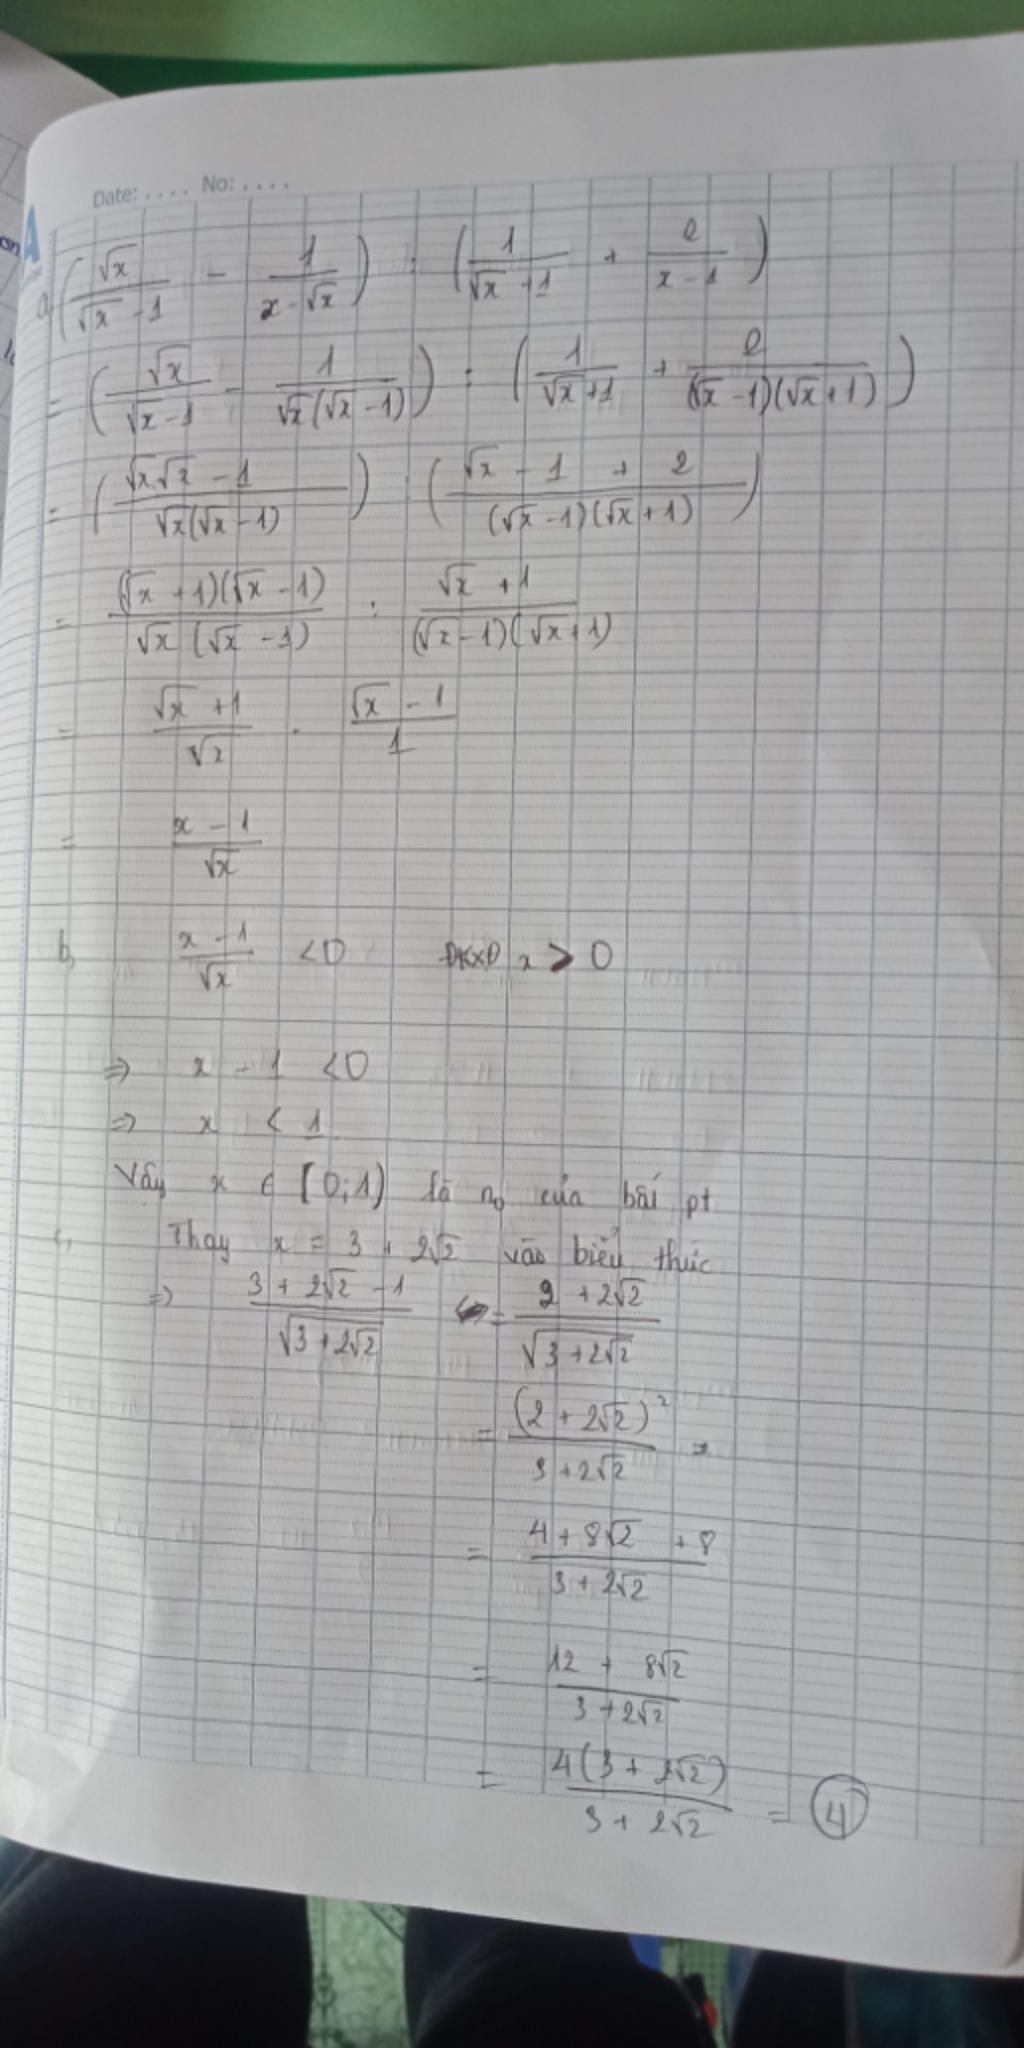 Date: .... No: ....
a, (√x/(√x - 1) - 1/(x - √x)) : (1/(√x + 1) + 2/(x - 1))
= (√x/(√x - 1) - 1/(√x(√x - 1))) : (1/(√x + 1) + 2/((√x - 1)(√x + 1)))
= ((√x√x - 1)/(√x(√x - 1))) : ((√x - 1 + 2)/((√x - 1)(√x + 1)))
= ((√x + 1)(√x - 1))/(√x(√x - 1)) : (√x + 1)/((√x - 1)(√x + 1))
= (√x + 1)/√x . (√x - 1)/1
= (x - 1)/√x
b, (x - 1)/√x < 0 ĐKXĐ x > 0
⇒ x - 1 < 0
⇒ x < 1
Vậy x ∈ [0;1) là no của bất pt
c, Thay x = 3 + 2√2 vào biểu thức
⇒ (3 + 2√2 - 1)/√(3 + 2√2) = (2 + 2√2)/√(3 + 2√2)
= (2 + 2√2)²/(3 + 2√2) =
= (4 + 8√2 + 8)/(3 + 2√2)
= (12 + 8√2)/(3 + 2√2)
= 4(3 + 2√2)/(3 + 2√2) = 4